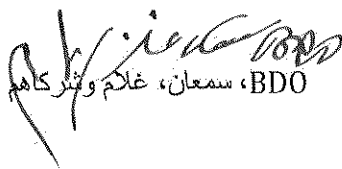 BDO، سمعان، غلام وشركاهم